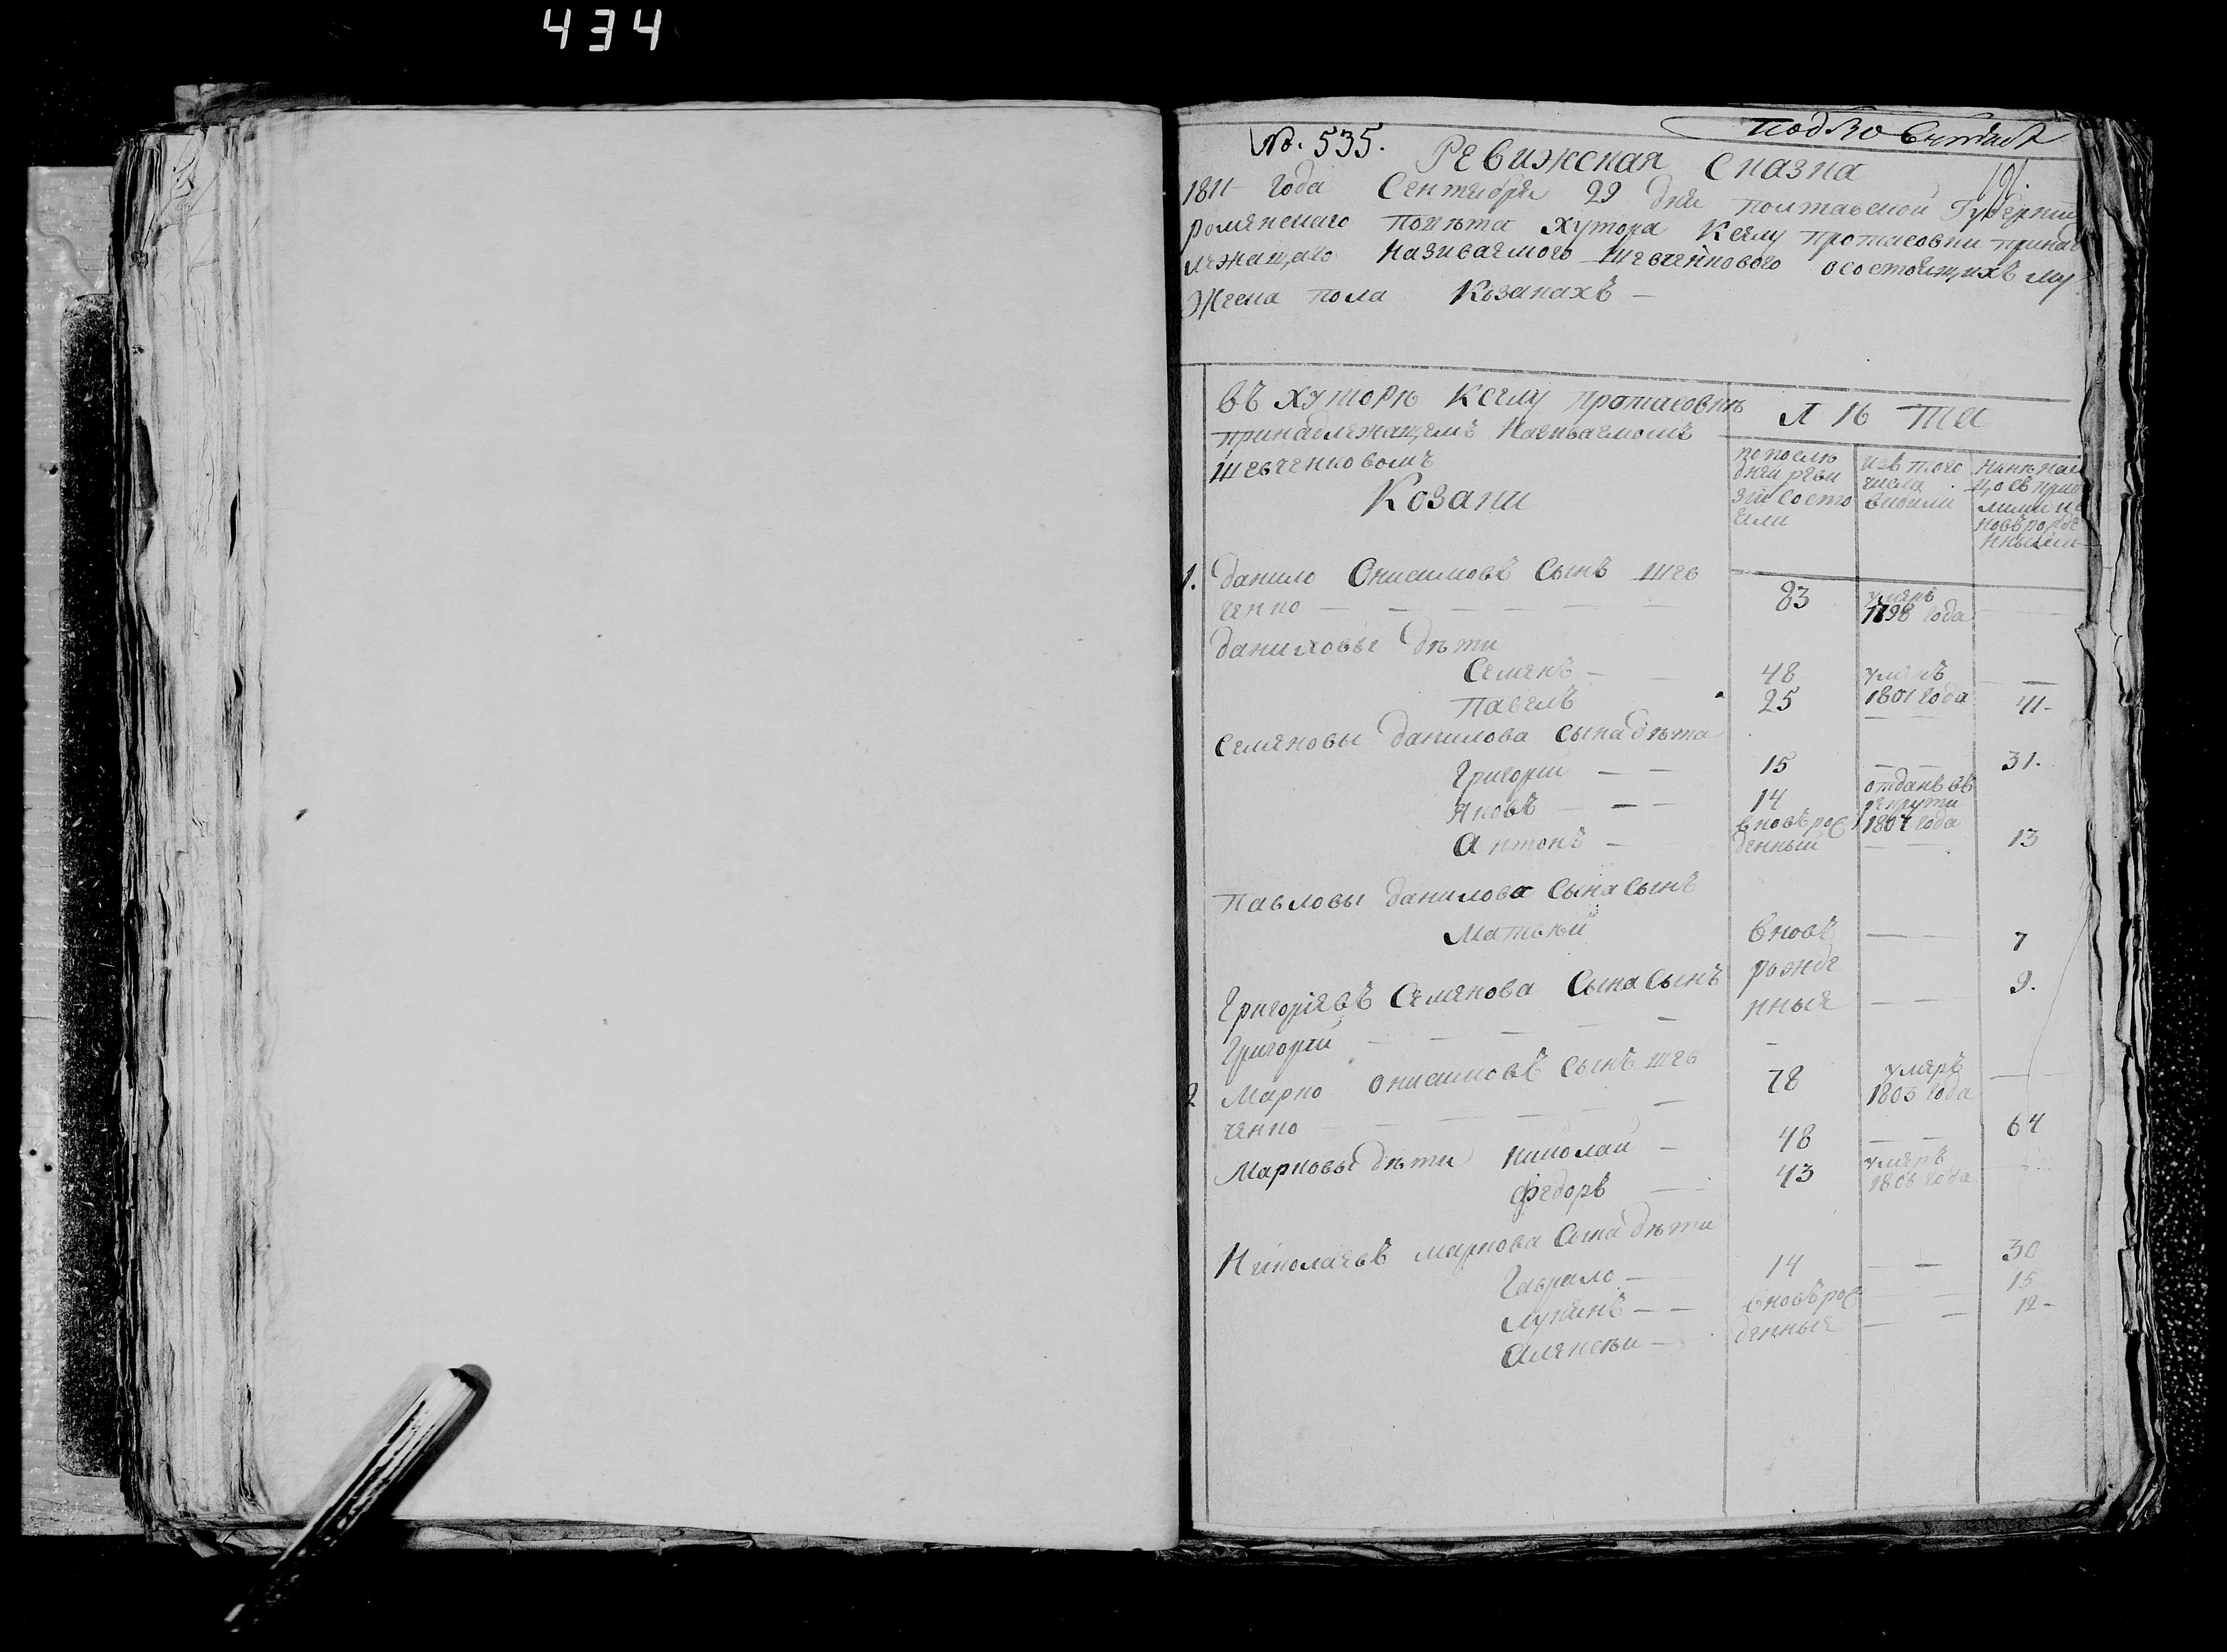 434
№. 535.
Ревижская Сказка
1811 года Сентября 29 дня полтавской Губерніи
роменскаго повѣта хутора Kселу протасовки принад
лежащаго Называемого Шевченкового осостоящихъ му
Жеска пола Козакахъ —
въ хуторѣ Kселу протасовкѣ
принадлежащемъ Називаемомъ
Шевченковомъ
Козаки
Лѣта
попослѣ
дней реви
зіи состо
яли
изъ того
числа
выбили
1. данило Онисимовъ Сынъ шев
ченко — 83 умеръ 1798 года —
даниловы дѣти
Семенъ — 48 умеръ 1801 года —
павелъ 25 — 41-
Семеновы данилова сына дѣти
Григорий — 15 — 31.
Яковъ — 14 отданъ въ рекруты 1807 года
Антонъ — вновъ рож денный — 13
павловы данилова Сына Сынъ
Матвѣй вновъ — 7
Григоріевъ Семенова Сына Сынъ рожде — 9.
Григорій — нныя —
2 Марко Онисимовъ Сынъ шев 78 умеръ —
ченко — 1803 года
Марковы дѣти Николай — 48 — 64
федоръ — 43 умеръ 1806 года
Николаевъ маркова Сына дѣти
Гаврило — 14 — 30
лукянъ — вновъ рож — 15
Алексѣи — денныя — 12-